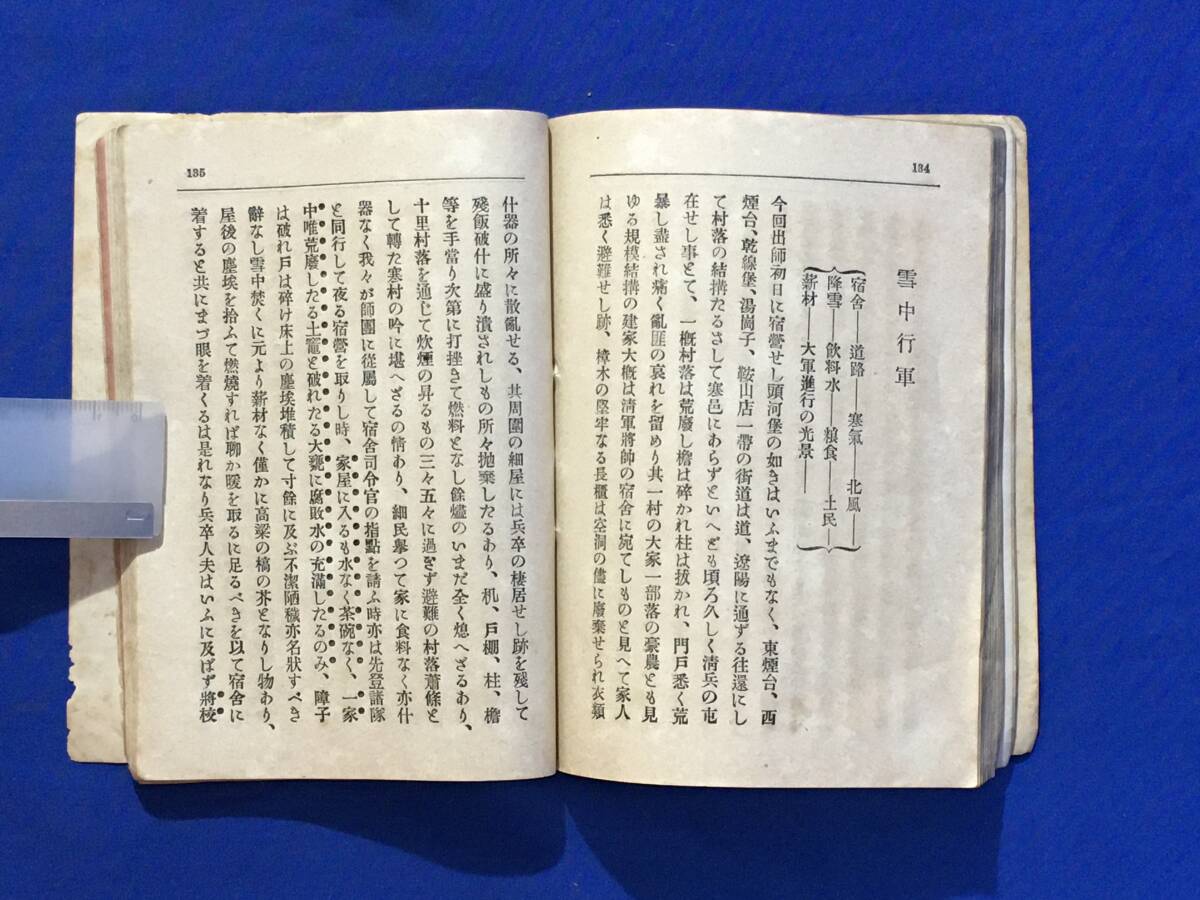 134
雪中行軍
宿舍――道路――寒氣――北風――
降雪――飮料水――粮食――土民―
薪材――大軍進行の光景――
今回出師初日に宿營せし頭河堡の如きはいふまでもなく、東煙台、西
煙台、乾線堡、湯崗子、鞍山店一帶の街道は道、遼陽に通ずる往還にし
て村落の結搆たるさして寒邑にあらずといへども頃ろ久しく淸兵の屯
在せし事とて、一槪村落は荒廢し檐は碎かれ柱は拔かれ、門戸悉く荒
暴し盡され痛く亂匪の哀れを留めり共一村の大家一部落の豪農とも見
ゆる規模結搆の建家大槪は淸軍將帥の宿舍に宛てしものと見へて家人
は悉く避難せし跡、樟木の堅牢なる長櫃は空洞の儘に廢棄せられ衣類
135
什器の所々に散亂せる、其周圍の細屋には兵卒の棲居せし跡を殘して
殘飯破什に盛り潰されしもの所々抛棄したるあり、机、戸棚、柱、檐
等を手當り次第に打挫きて燃料となし餘燼のいまだ全く熄へざるあり、
十里村落を通じて炊煙の昇るもの三々五々に過ぎず避難の村落蕭條と
して轉た寒村の吟に堪へざるの情あり、細民擧つて家に食料なく亦什
器なく我々が師團に從屬して宿舍司令官の指點を請ふ時亦は先登諸隊
と同行して夜る宿營を取りし時、家屋に入るも水なく茶碗なく、一家
中唯荒廢したる土竈と破れたる大甕に腐敗水の充滿したるのみ、障子
は破れ戸は碎け床上の塵埃堆積して寸餘に及ぶ不潔陋穢亦名狀すべき
辭なし雪中焚くに元より薪材なく僅かに高粱の槁の芥となりし物あり、
屋後の塵埃を拾ふて燃燒すれば聊か暖を取るに足るべきを以て宿舍に
着すると共にまづ眼を着くるは是れなり兵卒人夫はいふに及ばず將校